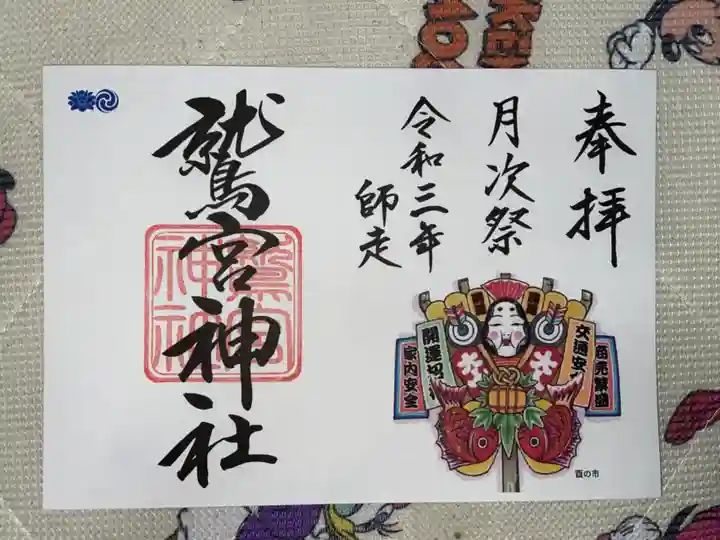 奉拝
月次祭
令和三年
師走
鷲宮神社
鷲宮
神社
商売繁盛
交通安
開運招
家内安全
大
大
酉の市